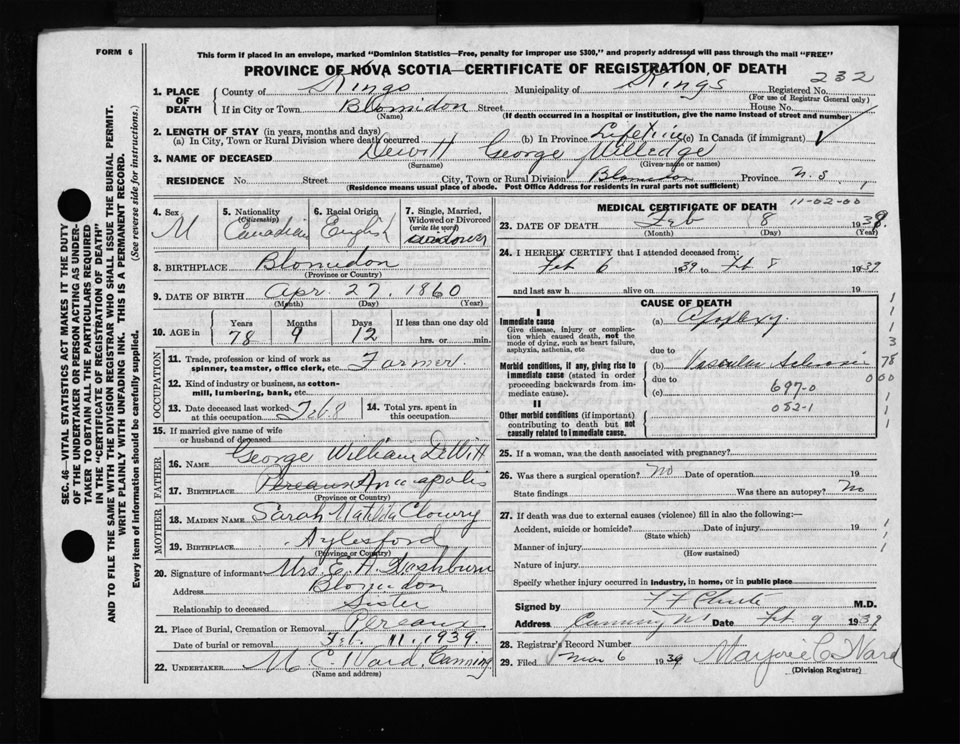 FORM 6
This form if placed in an envelope, marked "Dominion Statistics—Free, penalty for improper use $300," and properly addressed will pass through the mail "FREE"
PROVINCE OF NOVA SCOTIA—CERTIFICATE OF REGISTRATION OF DEATH
232
1. PLACE OF DEATH County of Kings Municipality of Kings Registered No.
(For use of Registrar General only)
If in City or Town Blomidon Street House No.
(Name) (If death occurred in a hospital or institution, give the name instead of street and number)
2. LENGTH OF STAY (in years, months and days)
(a) In City, Town or Rural Division where death occurred (b) In Province Lifetime (c) In Canada (if immigrant) ✓
3. NAME OF DECEASED Dewitt George Milledge
(Surname) (Given name or names)
RESIDENCE No. Street City, Town or Rural Division Blomidon Province N.S.
(Residence means usual place of abode. Post Office Address for residents in rural parts not sufficient)
4. Sex M
5. Nationality (Citizenship) Canadian
6. Racial Origin English
7. Single, Married, Widowed or Divorced (write the word) widower
8. BIRTHPLACE Blomidon
(Province or Country)
9. DATE OF BIRTH Apr 27, 1860
(Month) (Day) (Year)
10. AGE in Years 78 Months 9 Days 12 If less than one day old hrs. or min.
OCCUPATION
11. Trade, profession or kind of work as spinner, teamster, office clerk, etc. Farmer.
12. Kind of industry or business, as cotton-mill, lumbering, bank, etc.
13. Date deceased last worked at this occupation Feb 8
14. Total yrs. spent in this occupation.
15. If married give name of wife or husband of deceased
FATHER
16. NAME George William DeWitt
17. BIRTHPLACE Pereaux Annapolis
(Province or Country)
MOTHER
18. MAIDEN NAME Sarah Matilda
19. BIRTHPLACE Aylesford
(Province or Country)
20. Signature of informant Mrs. E. A. Washburn
Address Blomidon
Relationship to deceased Sister
21. Place of Burial, Cremation or Removal Pereaux
Date of burial or removal Feb. 11, 1939.
22. UNDERTAKER M C Ward, Canning
(Name and address)
MEDICAL CERTIFICATE OF DEATH
11-02-00
23. DATE OF DEATH Feb 8 1939
(Month) (Day) (Year)
24. I HEREBY CERTIFY that I attended deceased from:
Feb 6 1939 to Feb 8 1939
and last saw h alive on 19
CAUSE OF DEATH
I
Immediate cause
Give disease, injury or complication which caused death, not the mode of dying, such as heart failure, asphyxia, asthenia, etc
(a) Apoplexy.
due to
Morbid conditions, if any, giving rise to immediate cause (stated in order proceeding backwards from immediate cause).
(b) Vascular Sclerosis
due to
(c) 697-0
II
082-1
Other morbid conditions (if important) contributing to death but not causally related to immediate cause.
1
1
1
3
78
000
1
1
1
25. If a woman, was the death associated with pregnancy?
26. Was there a surgical operation? No Date of operation 19
State findings Was there an autopsy? No
27. If death was due to external causes (violence) fill in also the following:—
Accident, suicide or homicide? Date of injury 19
(State which)
Manner of injury
(How sustained)
Nature of injury
Specify whether injury occurred in industry, in home, or in public place
Signed by F F Chute M.D.
Address Canning NS Date Feb 9 1939
28. Registrar's Record Number
29. Filed Mar 6 1939 Marjorie C Ward
(Division Registrar)
SEC. 46—VITAL STATISTICS ACT MAKES IT THE DUTY
OF THE UNDERTAKER OR PERSON ACTING AS UNDER-
TAKER TO OBTAIN ALL THE PARTICULARS REQUIRED
IN THE "CERTIFICATE OF REGISTRATION OF DEATH"
AND TO FILE THE SAME WITH THE DIVISION REGISTRAR WHO SHALL ISSUE THE BURIAL PERMIT.
WRITE PLAINLY WITH UNFADING INK. THIS IS A PERMANENT RECORD.
Every item of information should be carefully supplied. (See reverse side for instructions.)